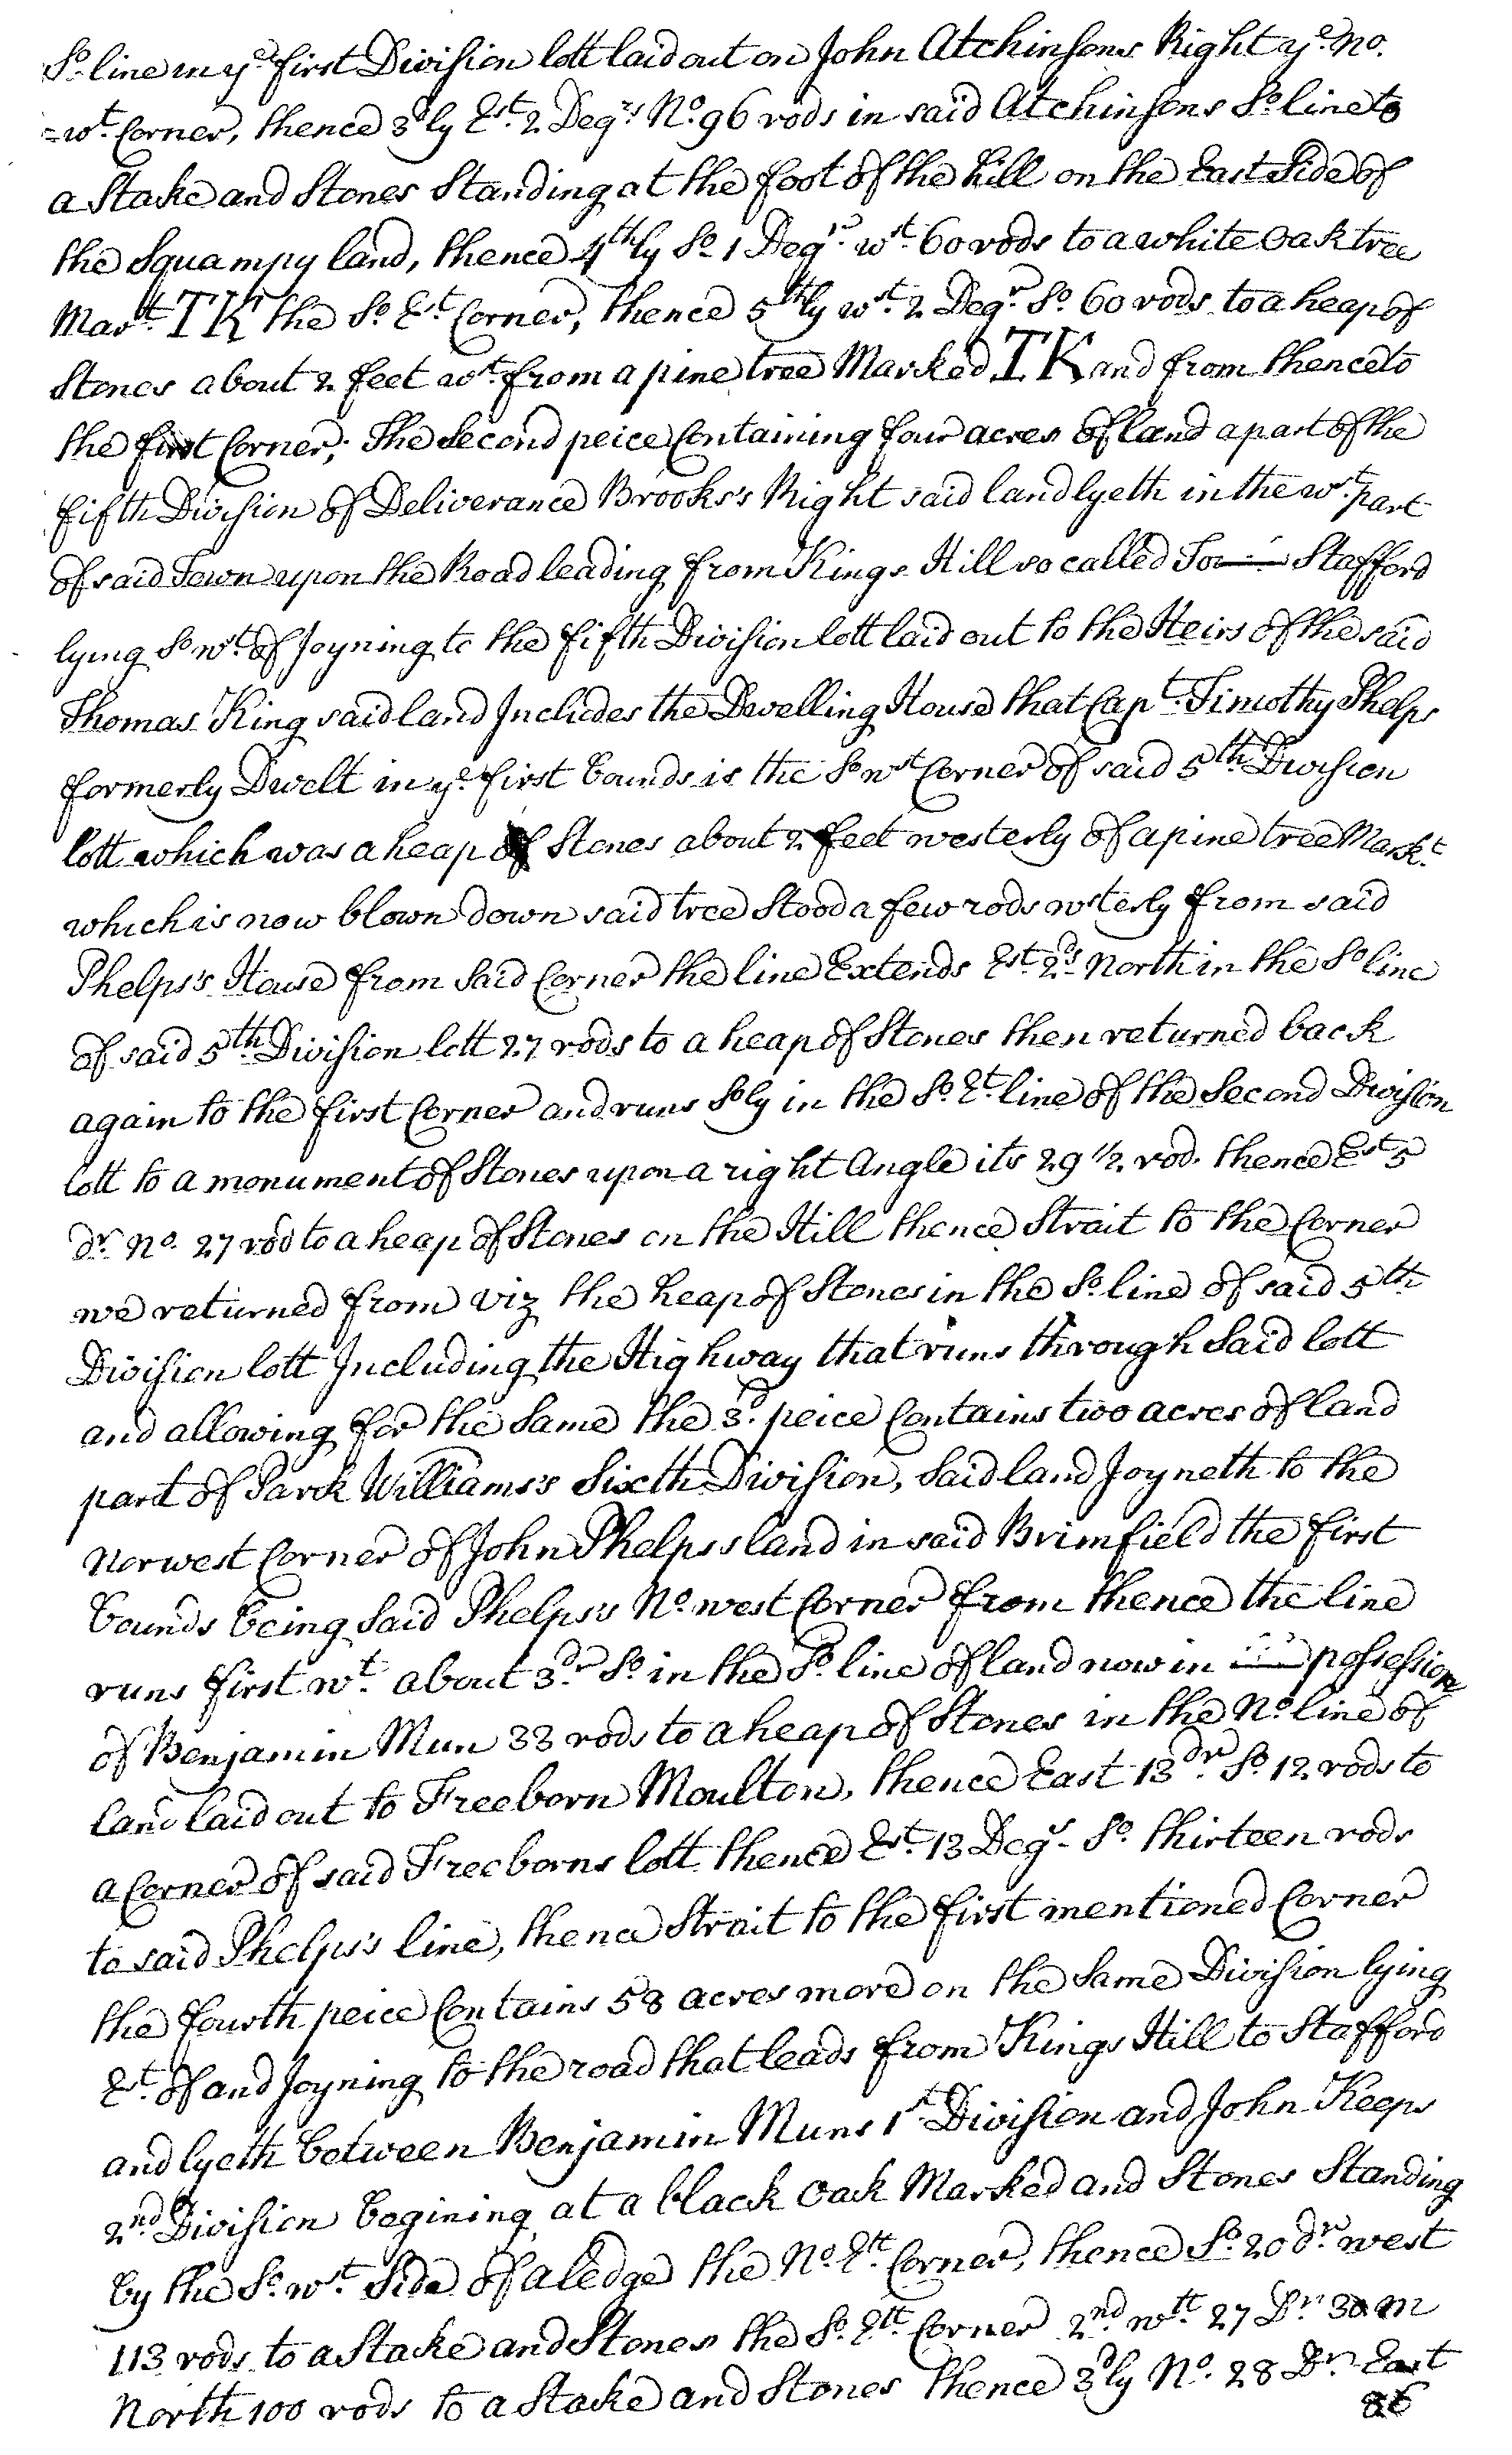 So. line in ye. first Division lott laid out on John Atchinsons Right ye. No.
=wt. Corner, thence 3dly Est. 2 Degrs. No. 96 rods in said Atchinsons So. line to
a Stake and Stones Standing at the foot of the hill on the East Side of
the Squampy land, thence 4thly So. 1 Degr. wt. 60 rods to a white Oak tree
Markt. TK the So. Est. Corner, thence 5thly wst. 2 Degr. So. 60 rods to a heap of
Stones about 2 feet wt. from a pine tree Marked TK and from thence to
the first Corner; The Second peice Containing four acres of land a part of the
fifth Division of Deliverance Brooks's Right said land lyeth in the wst. part
of said Town upon the Road leading from Kings Hill so called To Stafford
lying So wt. of Joyning to the fifth Division lott laid out to the Heirs of the said
Thomas King said land Includes the Dwelling House that Capt. Timothy Phelps
formerly Dwelt in ye. first bounds is the So wst Corner of said 5th. Division
lott which was a heap of Stones about 2 feet westerly of a pine tree Markt.
which is now blown down said tree Stood a few rods wsterly from said
Phelps's House from Said Corner the line Extends Est. 2ds. North in the So line
of said 5th. Division lott 27 rods to a heap of Stones then returned back
again to the first Corner and runs Soly in the So. Et. line of the Second Division
lott to a monument of Stones upon a right Angle its 29 1/2 rod. thence Est 5
dr. No. 27 rod to a heap of Stones on the Hill thence Strait to the Corner
we returned from viz the heap of Stones in the So. line of said 5th
Division lott Including the Highway that runs through Said lott
and allowing for the Same the 3d. peice Contains two acres of land
part of Parck Williams's Sixth Division, Said land Joyneth to the
Norwest Corner of John Phelps's land in said Brimfield the first
bounds being Said Phelps's No. west Corner from thence the line
runs first wt. about 3dr. So. in the So. line of land now in possession
of Benjamin Mun 33 rods to a heap of Stones in the No. line of
land laid out to Freeborn Moulton, thence East 13dr. So. 12 rods to
a Corner of said Freeborns lott thence Est. 13 Degs. So. thirteen rods
to said Phelps's line, thence Strait to the first mentioned Corner
the fourth peice Contains 58 acres more on the Same Division lying
Est. of and Joyning to the road that leads from Kings Hill to Stafford
and lyeth between Benjamin Muns 1st. Division and John Keeps
2nd. Division begining at a black Oak Marked and Stones Standing
by the So. wt. Side of a ledge the No. Estt. Corner, thence So. 20 dr. west
113 rods to a Stake and Stones the So. Estt. Corner 2nd. wtt. 27 Dr. 30 m
North 100 rods to a Stake and Stones thence 3dly No. 28 Dr. East
86